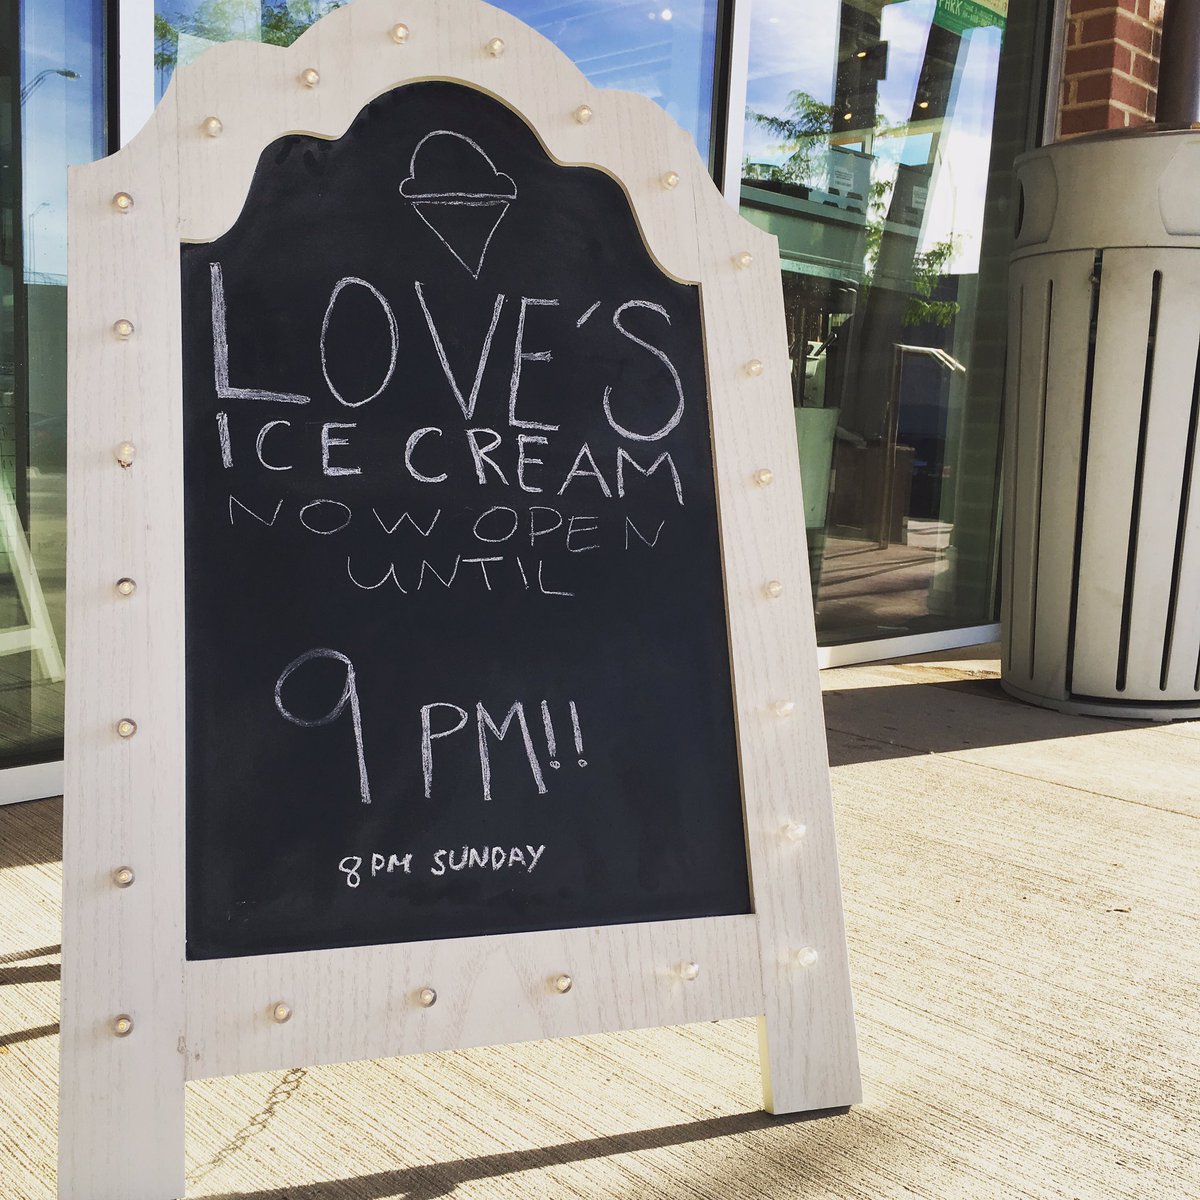 PARK
LOVE'S
ICE CREAM
NOW OPEN
UNTIL
9 PM!!
8PM SUNDAY